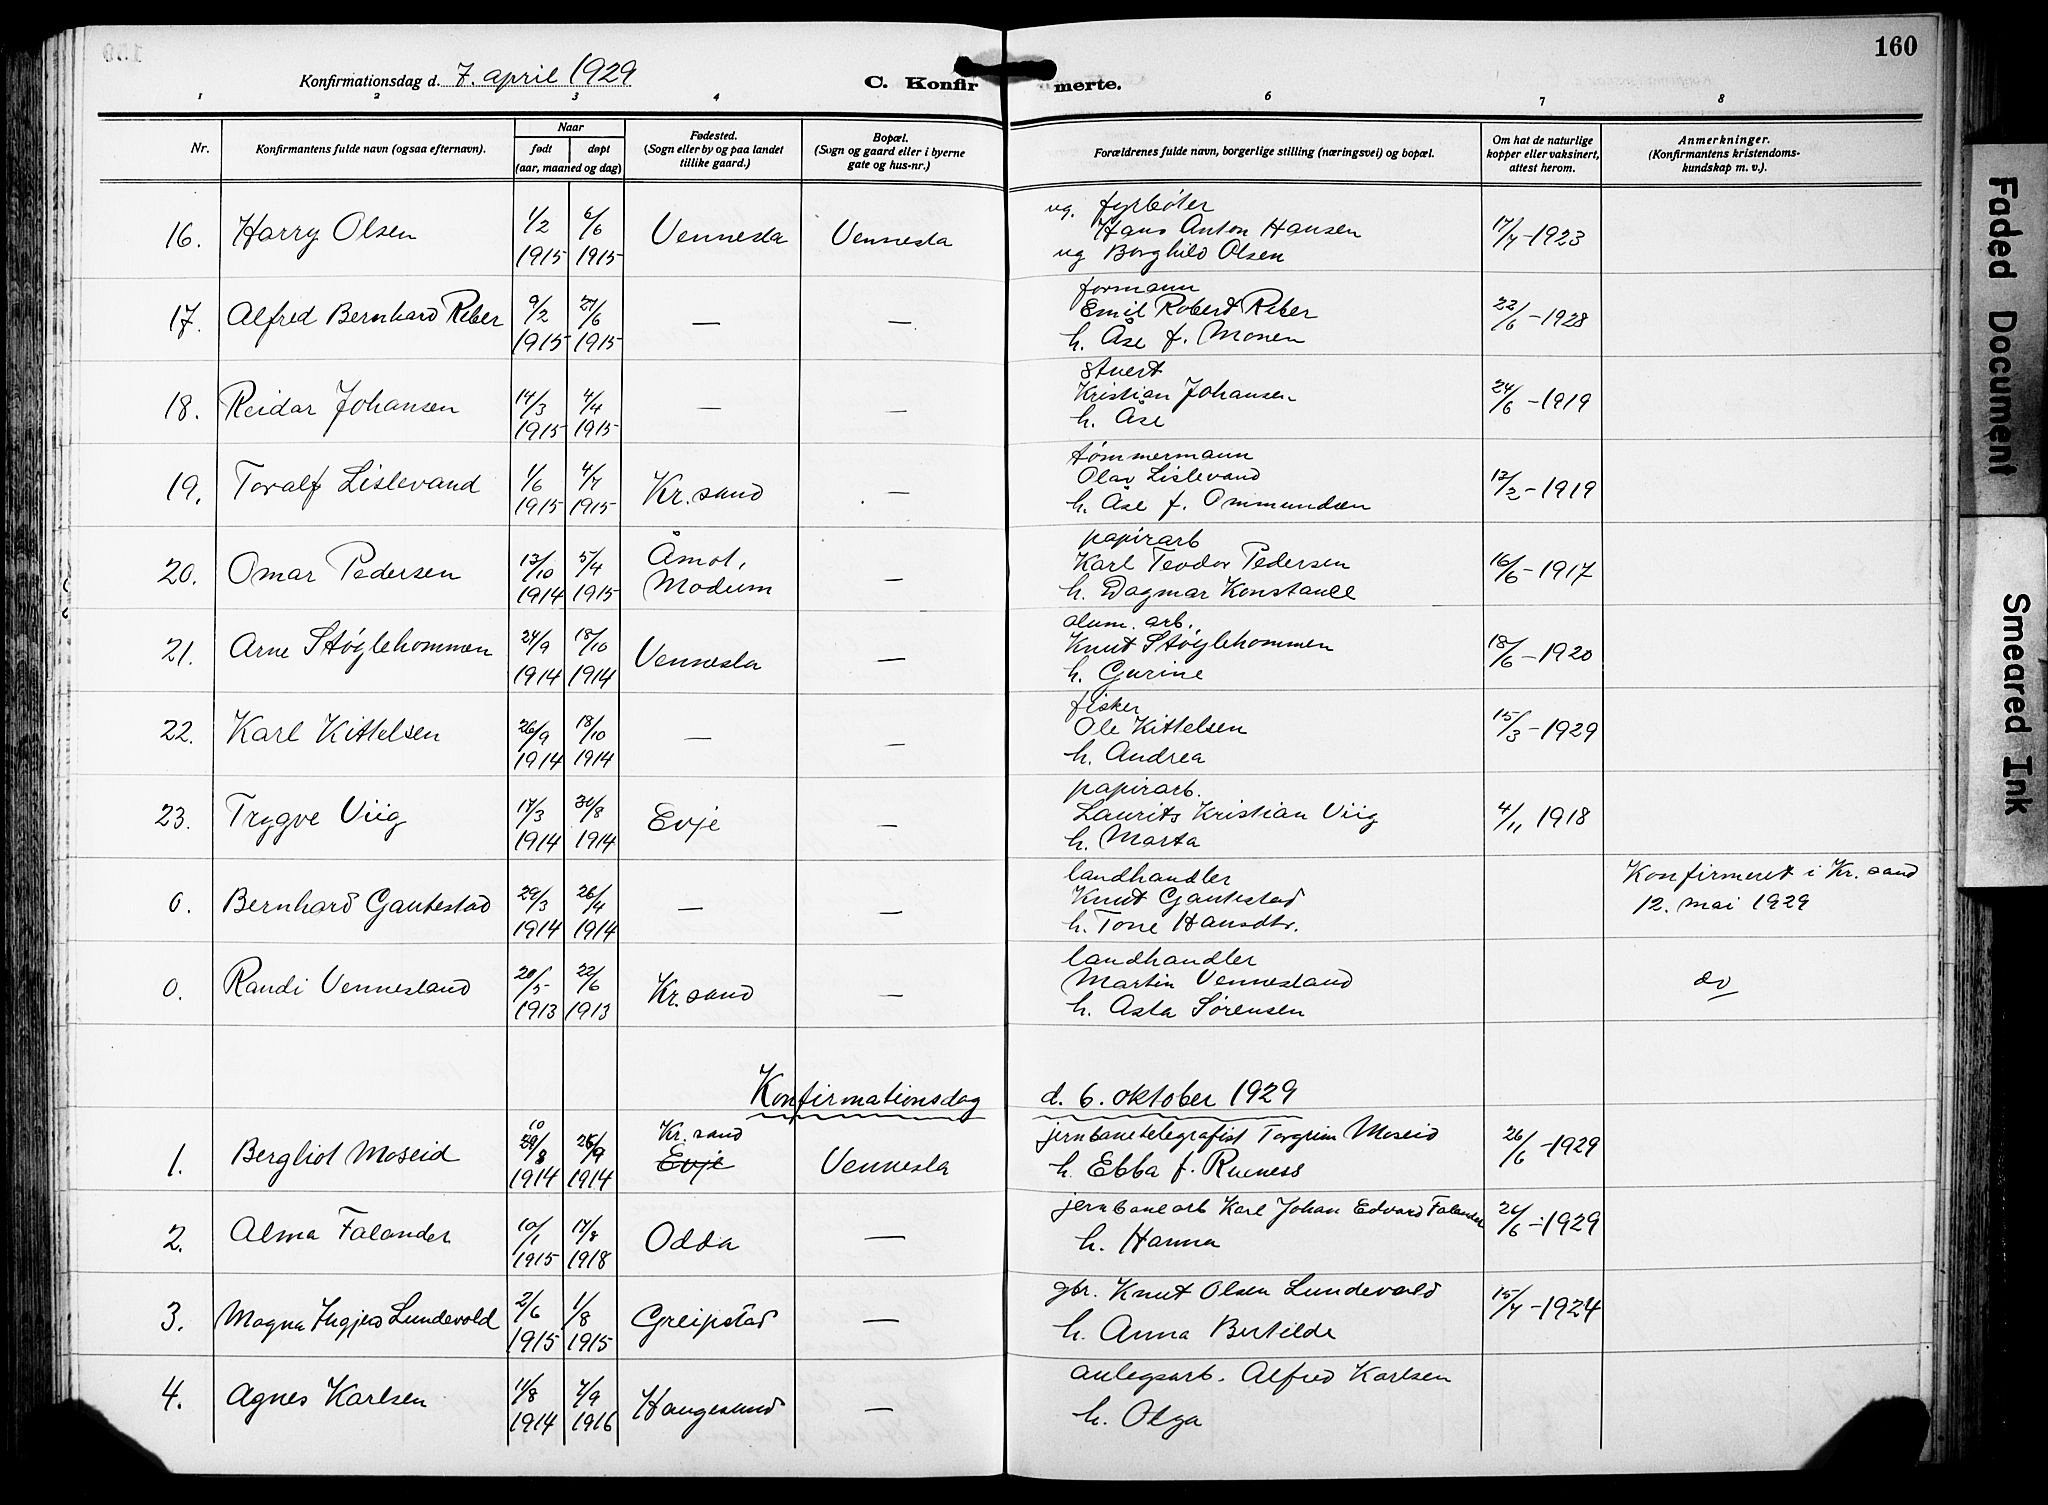 160
Konfirmationsdag d. 7. april 1929
C. Konfirmerte.
1 2 3 4 6 7 8
Nr. Konfirmantens fulde navn (ogsaa efternavn). Naar født døpt (aar, maaned og dag) Fødested. (Sogn eller by og paa landet tillike gaard.) Bopæl. (Sogn og gaard eller i byerne gate og hus-nr.) Forældrenes fulde navn, borgerlige stilling (næringsvei) og bopæl. Om hat de naturlige kopper eller vaksinert, attest herom. Anmerkninger. (Konfirmantens kristendomskundskap m. v.).
16. Harry Olsen 1/2 1915 6/6 1915 Vennesla Vennesla ug. fyrbøter
Hans Anton Hansen
ug Borghild Olsen 17/7-1923
17. Alfred Bernhard Reber 9/2 1915 27/6 1915 — — formann
Emil Robert Reber
h. Åse f. Monen 22/6-1928
18. Reidar Johansen 14/3 1915 4/4 1915 — — stuert
Kristian Johansen
h. Åse 24/6-1919
19. Toralf Lislevand 1/6 1915 4/7 1915 Kr.sand — tømmermann
Olav Lislevand
h. Åse f. Ommundsen 13/2-1919
20. Omar Pedersen 13/10 1914 5/4 1915 Åmot, Modum — papirarb
Karl Teodor Pedersen
h. Dagmar Konstance 16/6-1917
21. Arne Støylehommen 24/9 1914 18/10 1914 Vennesla — alum. arb.
Knut Støylehommen
h. Gurine 18/6-1920
22. Karl Kittelsen 26/9 1914 18/10 1914 — — fisker
Ole Kittelsen
h. Andrea 15/3-1929
23. Trygve Viig 17/3 1914 30/8 1914 Evje — papirarb.
Laurits Kristian Viig
h. Marta 4/11 1918
0. Bernhard Gautestad 29/3 1914 26/4 1914 — — landhandler
Knut Gautestad
h. Tone Hansdtr. Konfirmeret i Kr.sand
12. mai 1929
0. Randi Vennesland 20/5 1913 22/6 1913 Kr.sand — landhandler
Martin Vennesland
h. Asta Sørensen do
Konfirmationsdag d. 6. oktober 1929
1. Bergliot Moseid 10 29/8 1914 1914 Kr.sand Evje Vennesla jernbanetelegrafist Torgrim Moseid
h. Ebba f. Rueness 26/6-1929
2. Alma Falander 10/1 1915 17/8 1918 Odda — jernbanearb Karl Johan Edvard Falander
h. Hanna 26/6-1929
3. Magna Ingjerd Lundevold 2/6 1915 1/8 1915 Greipstad — gbr. Knut Olsen Lundevold
h. Anna Bertilde 15/7-1924
4. Agnes Karlsen 11/8 1914 7/9 1916 Haugesund — anlegsarb. Alfred Karlsen
h. Olga
Faded Document
Smeared Ink